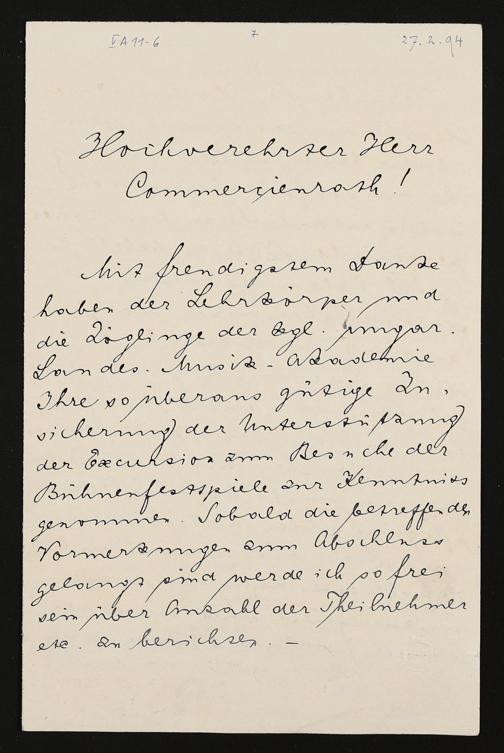 V A 11-6 7 27.2.94
Hochverehrter Herr
Commerzienrath!
Mit freudigstem Danke
haben der Lehrkörper und
die Zöglinge der kgl. ungar.
Landes-Musik-Akademie
Ihre so überaus gütige Zu-
sicherung der Unterstützung
der Excursion zum Besuche der
Bühnenfestspiele zur Kenntniss
genommen. Sobald die betreffenden
Vormerkungen zum Abschluss
gelangt sind werde ich so frei
sein über Anzahl der Theilnehmer
etc. zu berichten. —